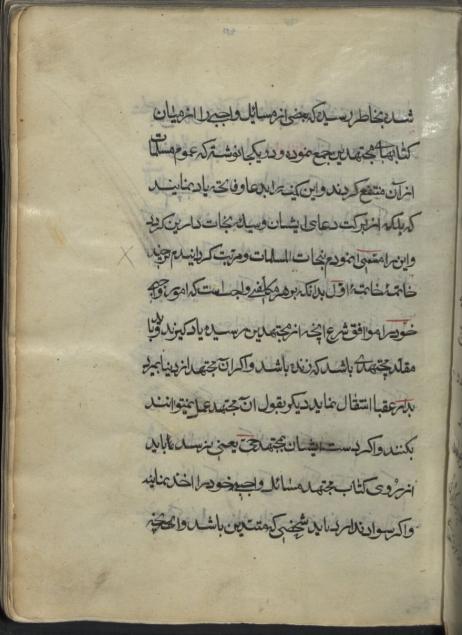 شده بخاطر رسیده که بعضی از مسائل واجبی را از میان
کتابهای مجتهدین جمع نموده و در یکجا نوشته که عموم مسلمات
از آن منتفع کردند و این کنیه را بدعا و فاتحه یاد نمایند
که بلکه از برکت دعای ایشان وسیله نجات دارین کردد
و این را مسمی نمودم بنجات المسلمات و مرتب کردانیدم بر چند
خاتمه خاتمه اول بدانکه بر هر مکلفی واجب است که امور واجبی
خود را موافق شرع آنچه از مجتهدین رسیده یاد کیرند و باید
مقلد مجتهدی باشد که زنده باشد و اکر آن مجتهد از دنیا بمیرد
بدار عقبا انتقال نماید دیکر بقول آن مجتهد عمل نمیتوانند
بکنند و اکر دست ایشان بمجتهد حی یعنی نرسد باید
از روی کتاب مجتهد مسائل واجبی خود را اخذ نمایند
و اکر سواد ندارد باید شخصی که متدین باشد و آنچه